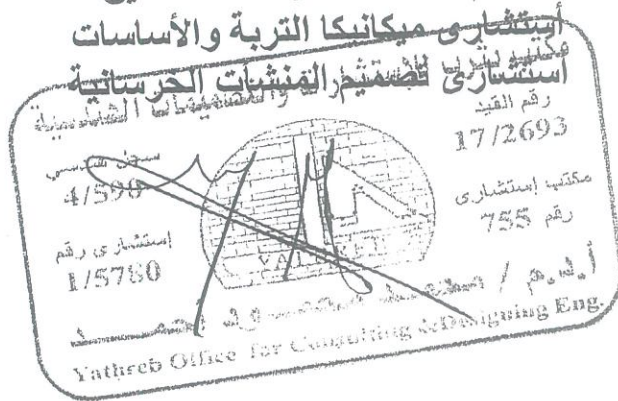 أستشارى ميكانيكا التربة والأساسات
استشارى تصميم المنشآت الخرسانية
رقم القيد
17/2693
سجل هندسي
4/590
مكتب إستشارى
رقم 755
إستشارى رقم
1/5780
YATHREB
أ.د.م / محمد
Yathreb Office for Consulting & Designing Eng.